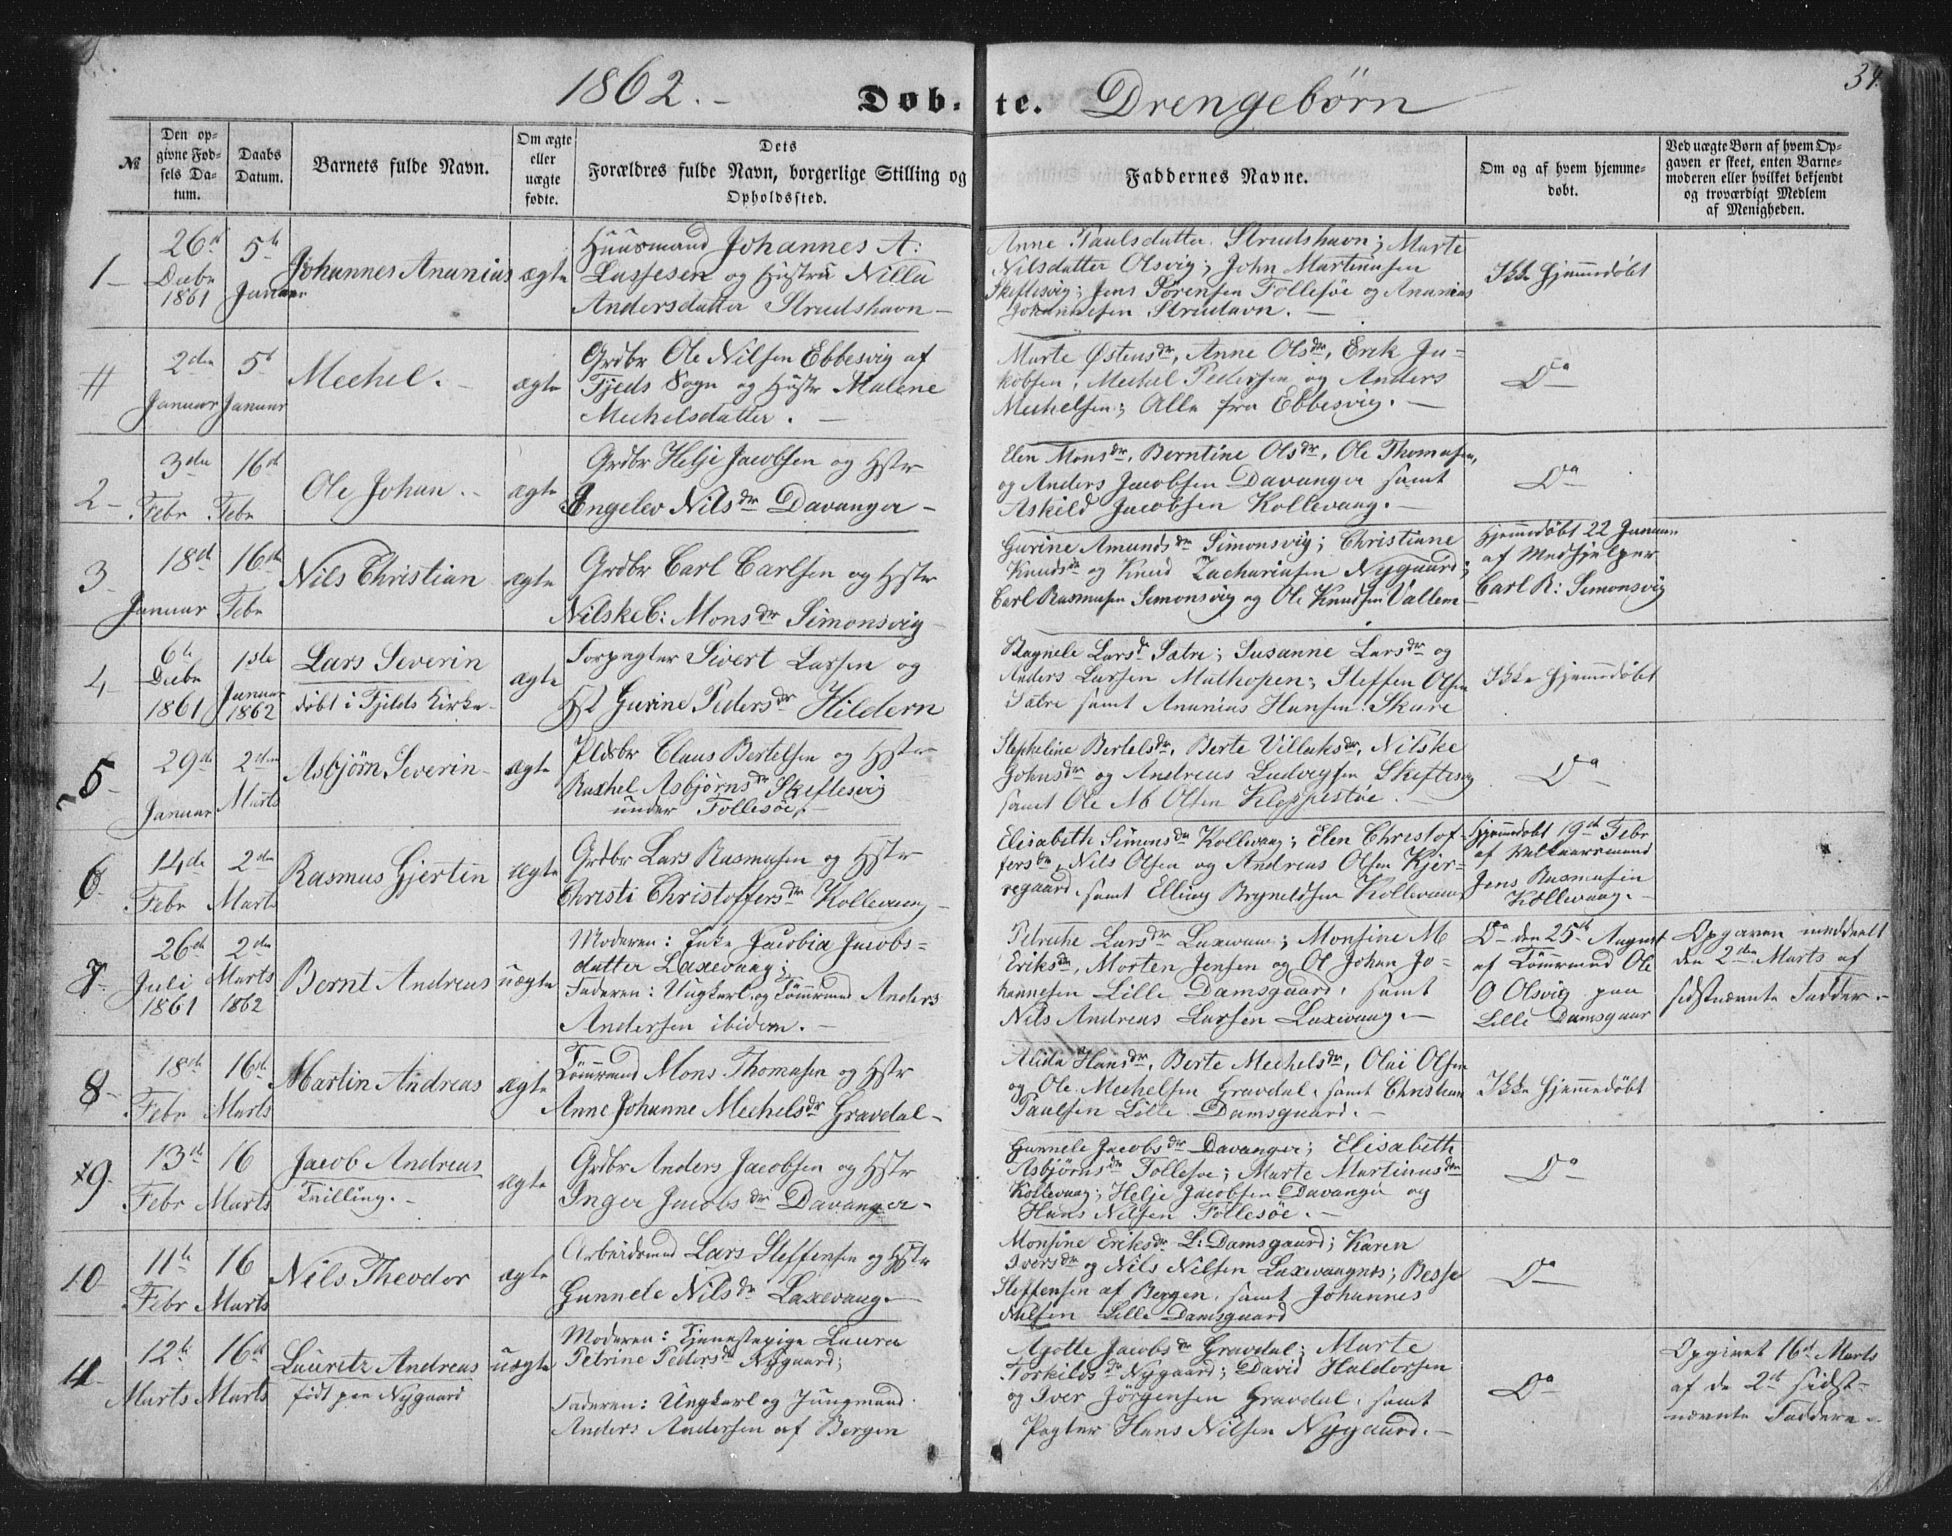 1862.-
Døb-te.
Drengebørn
34.
№
Den op-
givne Fød-
sels Da-
tum.
Daabs
Datum.
Barnets fulde Navn.
Om ægte
eller
uægte
fødte.
Dets
Forældres fulde Navn, borgerlige Stilling og
Opholdssted.
Faddernes Navne.
Om og af hvem hjemme-
døbt.
Ved uægte Børn af hvem Op-
gaven er skeet, enten Barne-
moderen eller hvilket bekjendt
og troværdigt Medlem
af Menigheden.
1
26d
Decbr
1861
5te
Januar
Johannes Ananias
ægte
Huusmand Johannes A:
Lassesen og Hustru Nilla
Andersdatter Strudshavn-
Anne Paulsdatter Strudshavn; Marte
Nilsdatter Olsvig; John Martinusen
Skieflesvig; Jens Sørensen Follesøe og Ananias
Johannesen Strudshavn.-
Ikke hjemmedøbt
#
2den
Januar
5t
Januar
Mechel.-
ægte
Grdbr Ole Nilsen Ebbesvig af
Fjelds Sogn og Hustr Malene
Mechelsdatter.-
Marte Østensdr, Anne Olsdr, Erik Ja-
kobsen, Mechel Pedersen og Anders
Mechelsen; Alle fra Ebbesvig.-
Do
2
3den
Febr
16d
Febr
Ole Johan.-
ægte
Grdbr Helje Jacobsen og Hstr
Engelev Nilsdr Davanger-
Elen Monsdr, Berntine Olsdr, Ole Thomasen,
og Anders Jacobsen Davanger samt
Askild Jacobsen Kollevaag.-
Do
3
18d
Januar
16de
Febr
Nils Christian
ægte
Grdbr Carl Carlsen og Hstr
Nilske C: Monsdr Simonsvig
Gurine Amundsdr Simonsvig; Christiane
Knudsdr og Knud Zachariasen Nygaard;
Carl Rasmusen Simonsvig og Ole Knudsen Vallem
Hjemmedøbt 22 Januar
af Medhjelper
Carl R: Simonsvig
4
6te
Decbr
1861
1ste
Januar
1862
Lars Severin
døbt i Fjelds Kirke-
ægte
Forpagter Sivert Larsen og
Hst Gurine Pedersdr Hildern
Ragnele Larsdr Satre; Susanne Larsdr og
Anders Larsen Mulhopen; Steffen Olsen
Satre samt Ananias Hansen Skare
Ikke hjemmedøbt
5
29de
Januar
2den
Marts
Asbjørn Severin-
ægte
Pldsbr Claus Bertelsen og Hstr
Rachel Asbjørnsdr Skieflesvig
under Follesøe.-
Stepheline Bertelsdr, Berte Villaksdr, Nilske
Johnsdr og Andreas Ludvigsen Skieflesvig
samt Ole M Olsen Kleppestøe.
Do
6
14de
Febr
2den
Marts
Rasmus Gjertin
ægte
Grdbr Lars Rasmusen og Hstr
Christi Christoffersdr Kollevaag-
Elisabeth Simonsdr Kollevaag; Elen Christof-
fersdr, Nils Olsen og Andreas Olsen Kjer-
regaard samt Elling Brynildsen Kollevaag
Hjemmedøbt 19d Febr
af
Jens Rasmusen
Kollevaag.-
7
26de
Juli
1861
2den
Marts
1862
Bernt Andreas
uægte
Moderen: Enke Jacobia Jacobs-
datter Laxevaag;
Faderen: Ungkarl og Tømrmand Anders
Andersen ibidem.-
Petriche Larsdr Laxevaag; Monsine M
Eriksdr, Morten Jensen og Ol Johan Jo-
hannesen Lille Damsgaard, samt
Nils Andreas Larsen Laxevaag.-
Do den 25t August
af Tømrmand Ole
O Olsvig paa
Lille Damsgaar
Opgaven meddeelt
den 2den Marts af
sidstnævnte Fadder.-
8
18de
Febr
16de
Marts
Martin Andreas
ægte
Tømrmand Mons Thomasen og Hstr
Anne Johanne Mechelsdr Gravdal-
Alida Hansdr, Berte Mechelsdr, Olai Olsen
og Ole Mechelsen Gravdal, samt Christian
Paulsen Lille Damsgaard.-
Ikke hjemmedøbt
x9
13de
Febr
16
Marts
Jacob Andreas
Tvilling.-
ægte
Grdbr Anders Jacobsen og Hstr
Inger Jacobsdr Davanger-
Gunnele Jacobsdr Davanger; Elisabeth
Asbjørnsdr Follesøe; Marte Martinusdr
Kollevaag; Helje Jacobsen Davanger og
Hans Nilsen Follesøe.-
Do
10
11te
Febr
16
Marts
Nils Theodor
ægte
Arbeidsmd Lars Steffensen og Hstr
Gunnele Nilsdr Laxevaag.-
Monsine Eriksdr L: Damsgaard; Karen
Iversdr og Nils Nilsen Laxevaagnes; Besse
Steffensen af Bergen, samt Johannes
Nilsen Lille Damsgaard
Do
11
12te
Marts
16d
Marts
Lauritz Andreas
født paa Nygaard
uægte
Moderen: Tjenestepige Laura
Petrine Pedersdr Nygaard;
Faderen: Ungkarl og Jungmand
Anders Andersen af Bergen
Agotte Jacobsdr Gravdal; Marte
Torkildsdr Nygaard; David Haldorsen
og Iver Jørgensen Gravdal, samt
Pagter Hans Nilsen Nygaard.-
Do
Opgivet 16d Marts
af de 2d sidst-
nævnte Faddere-